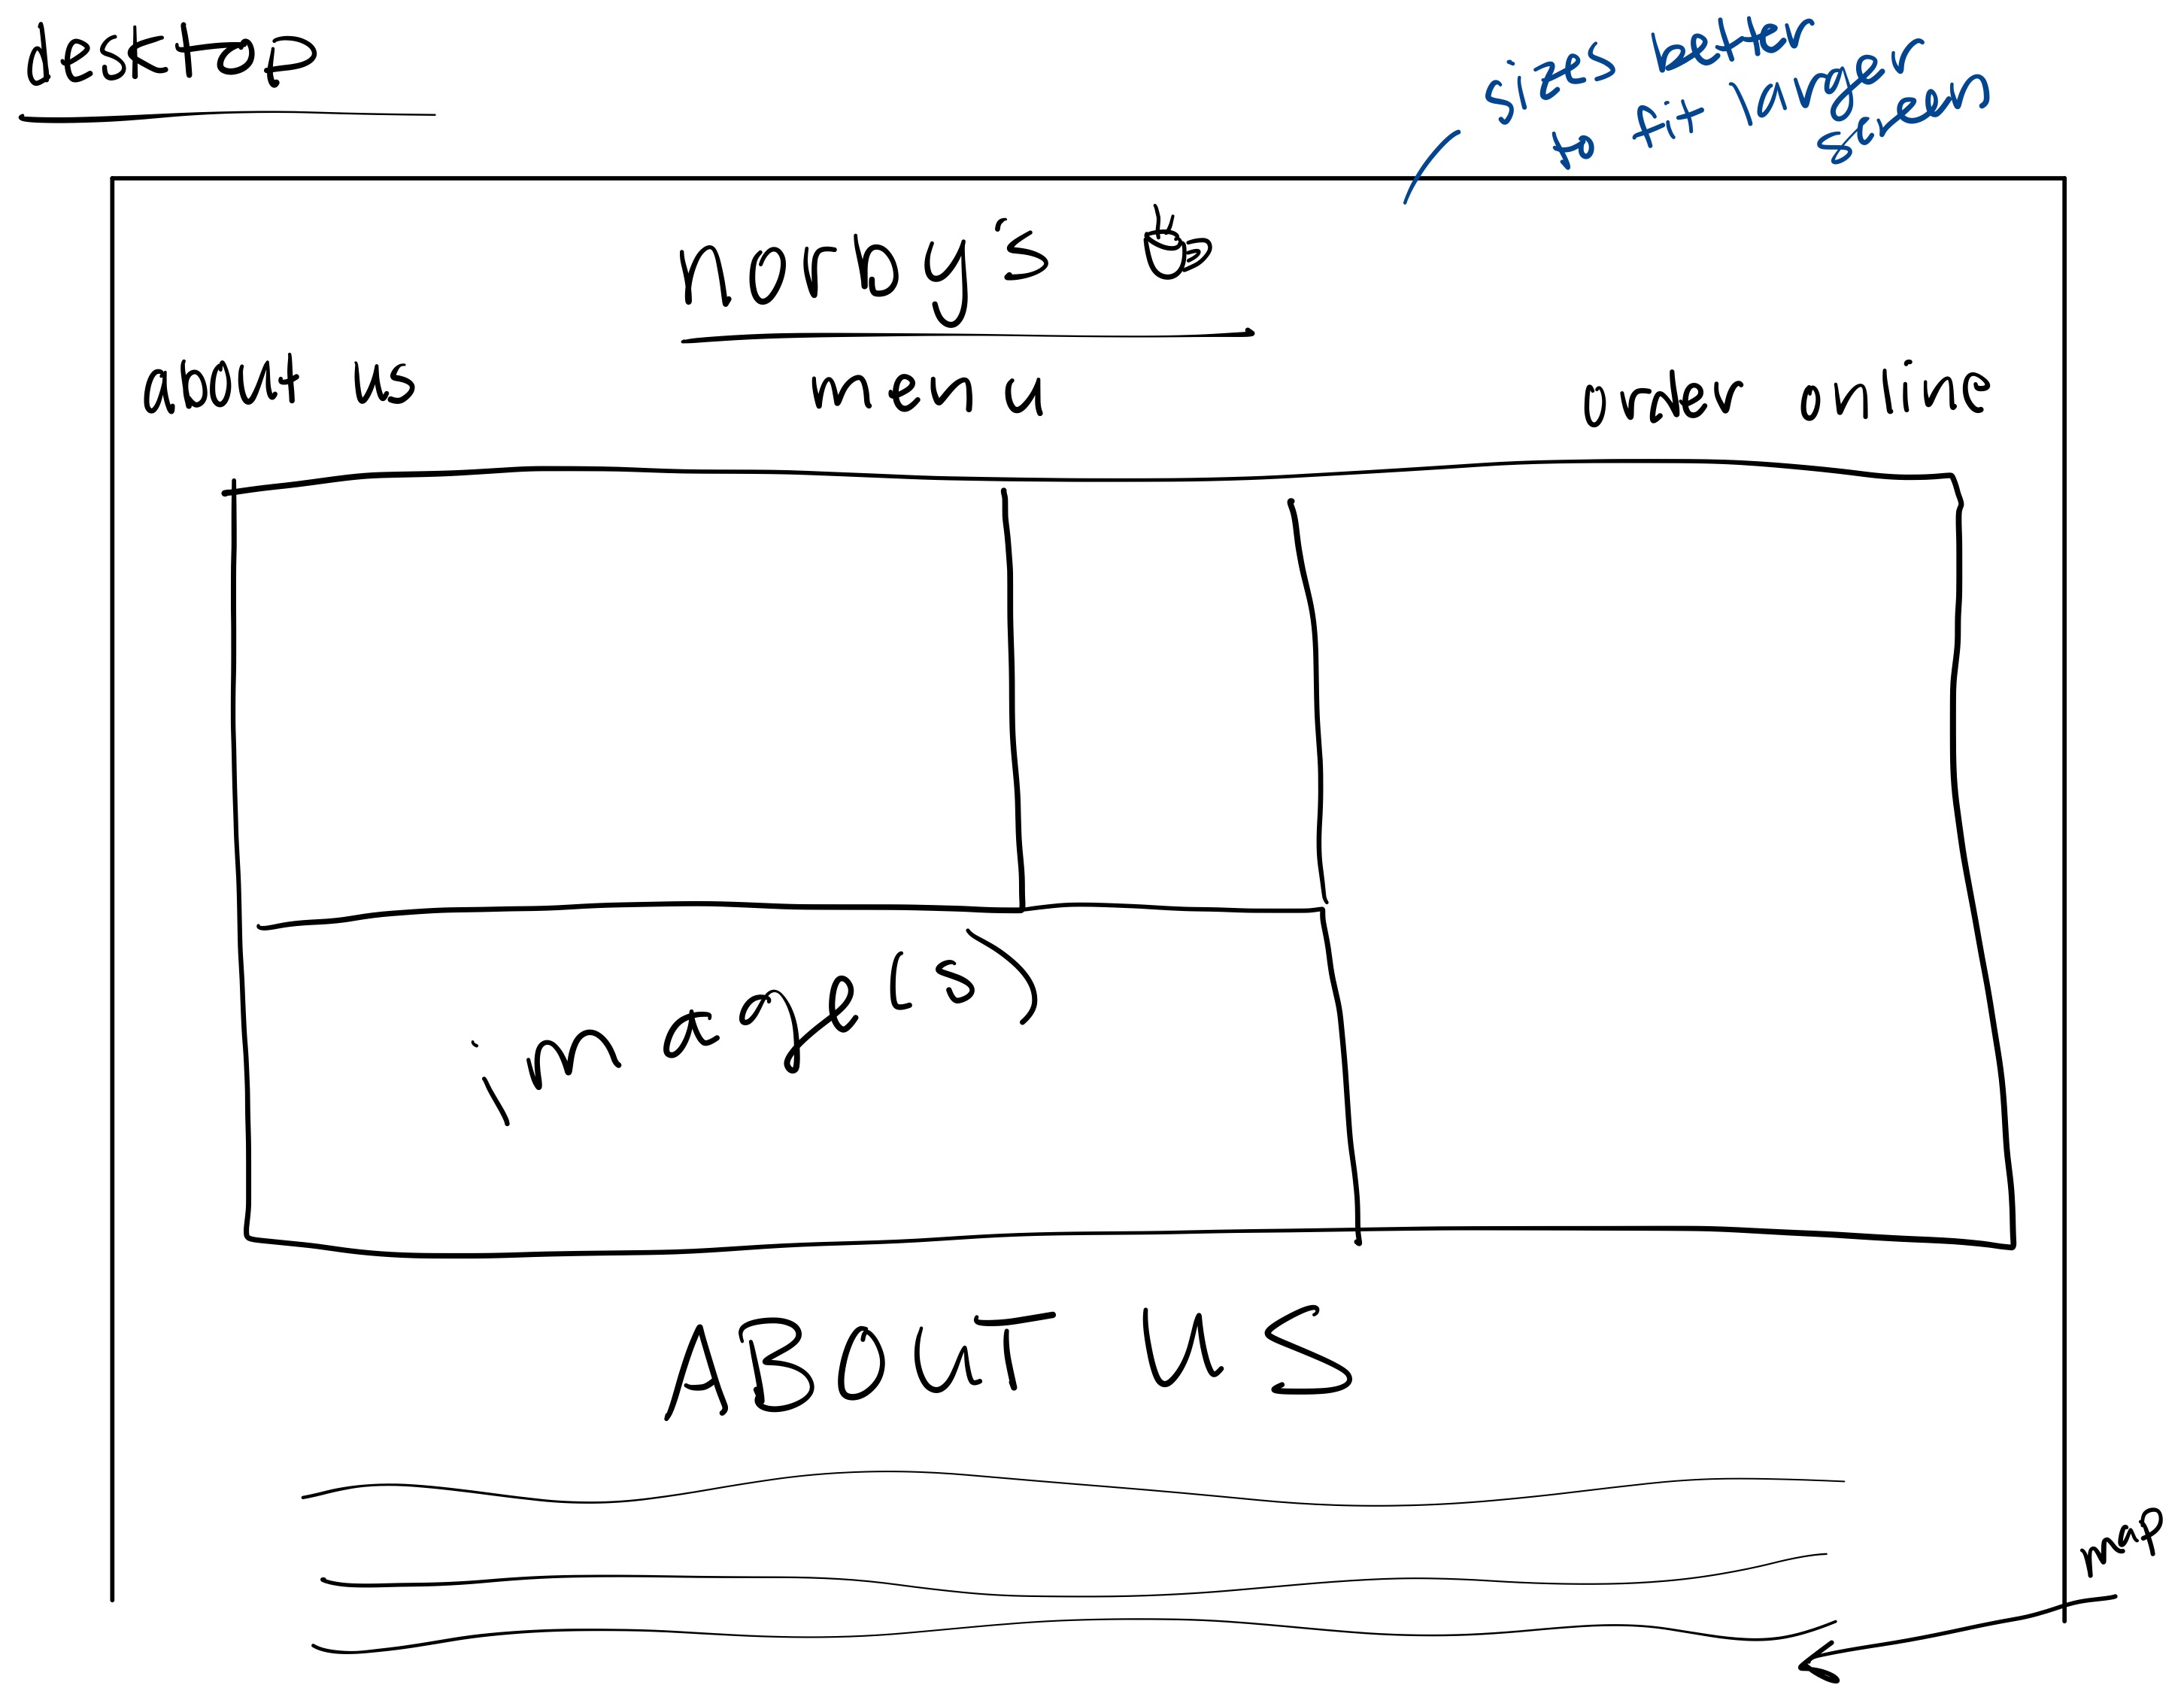 desktop
sizes better
to fit larger
screen
norby's
about us menu order online
image(s)
ABOUT US
map